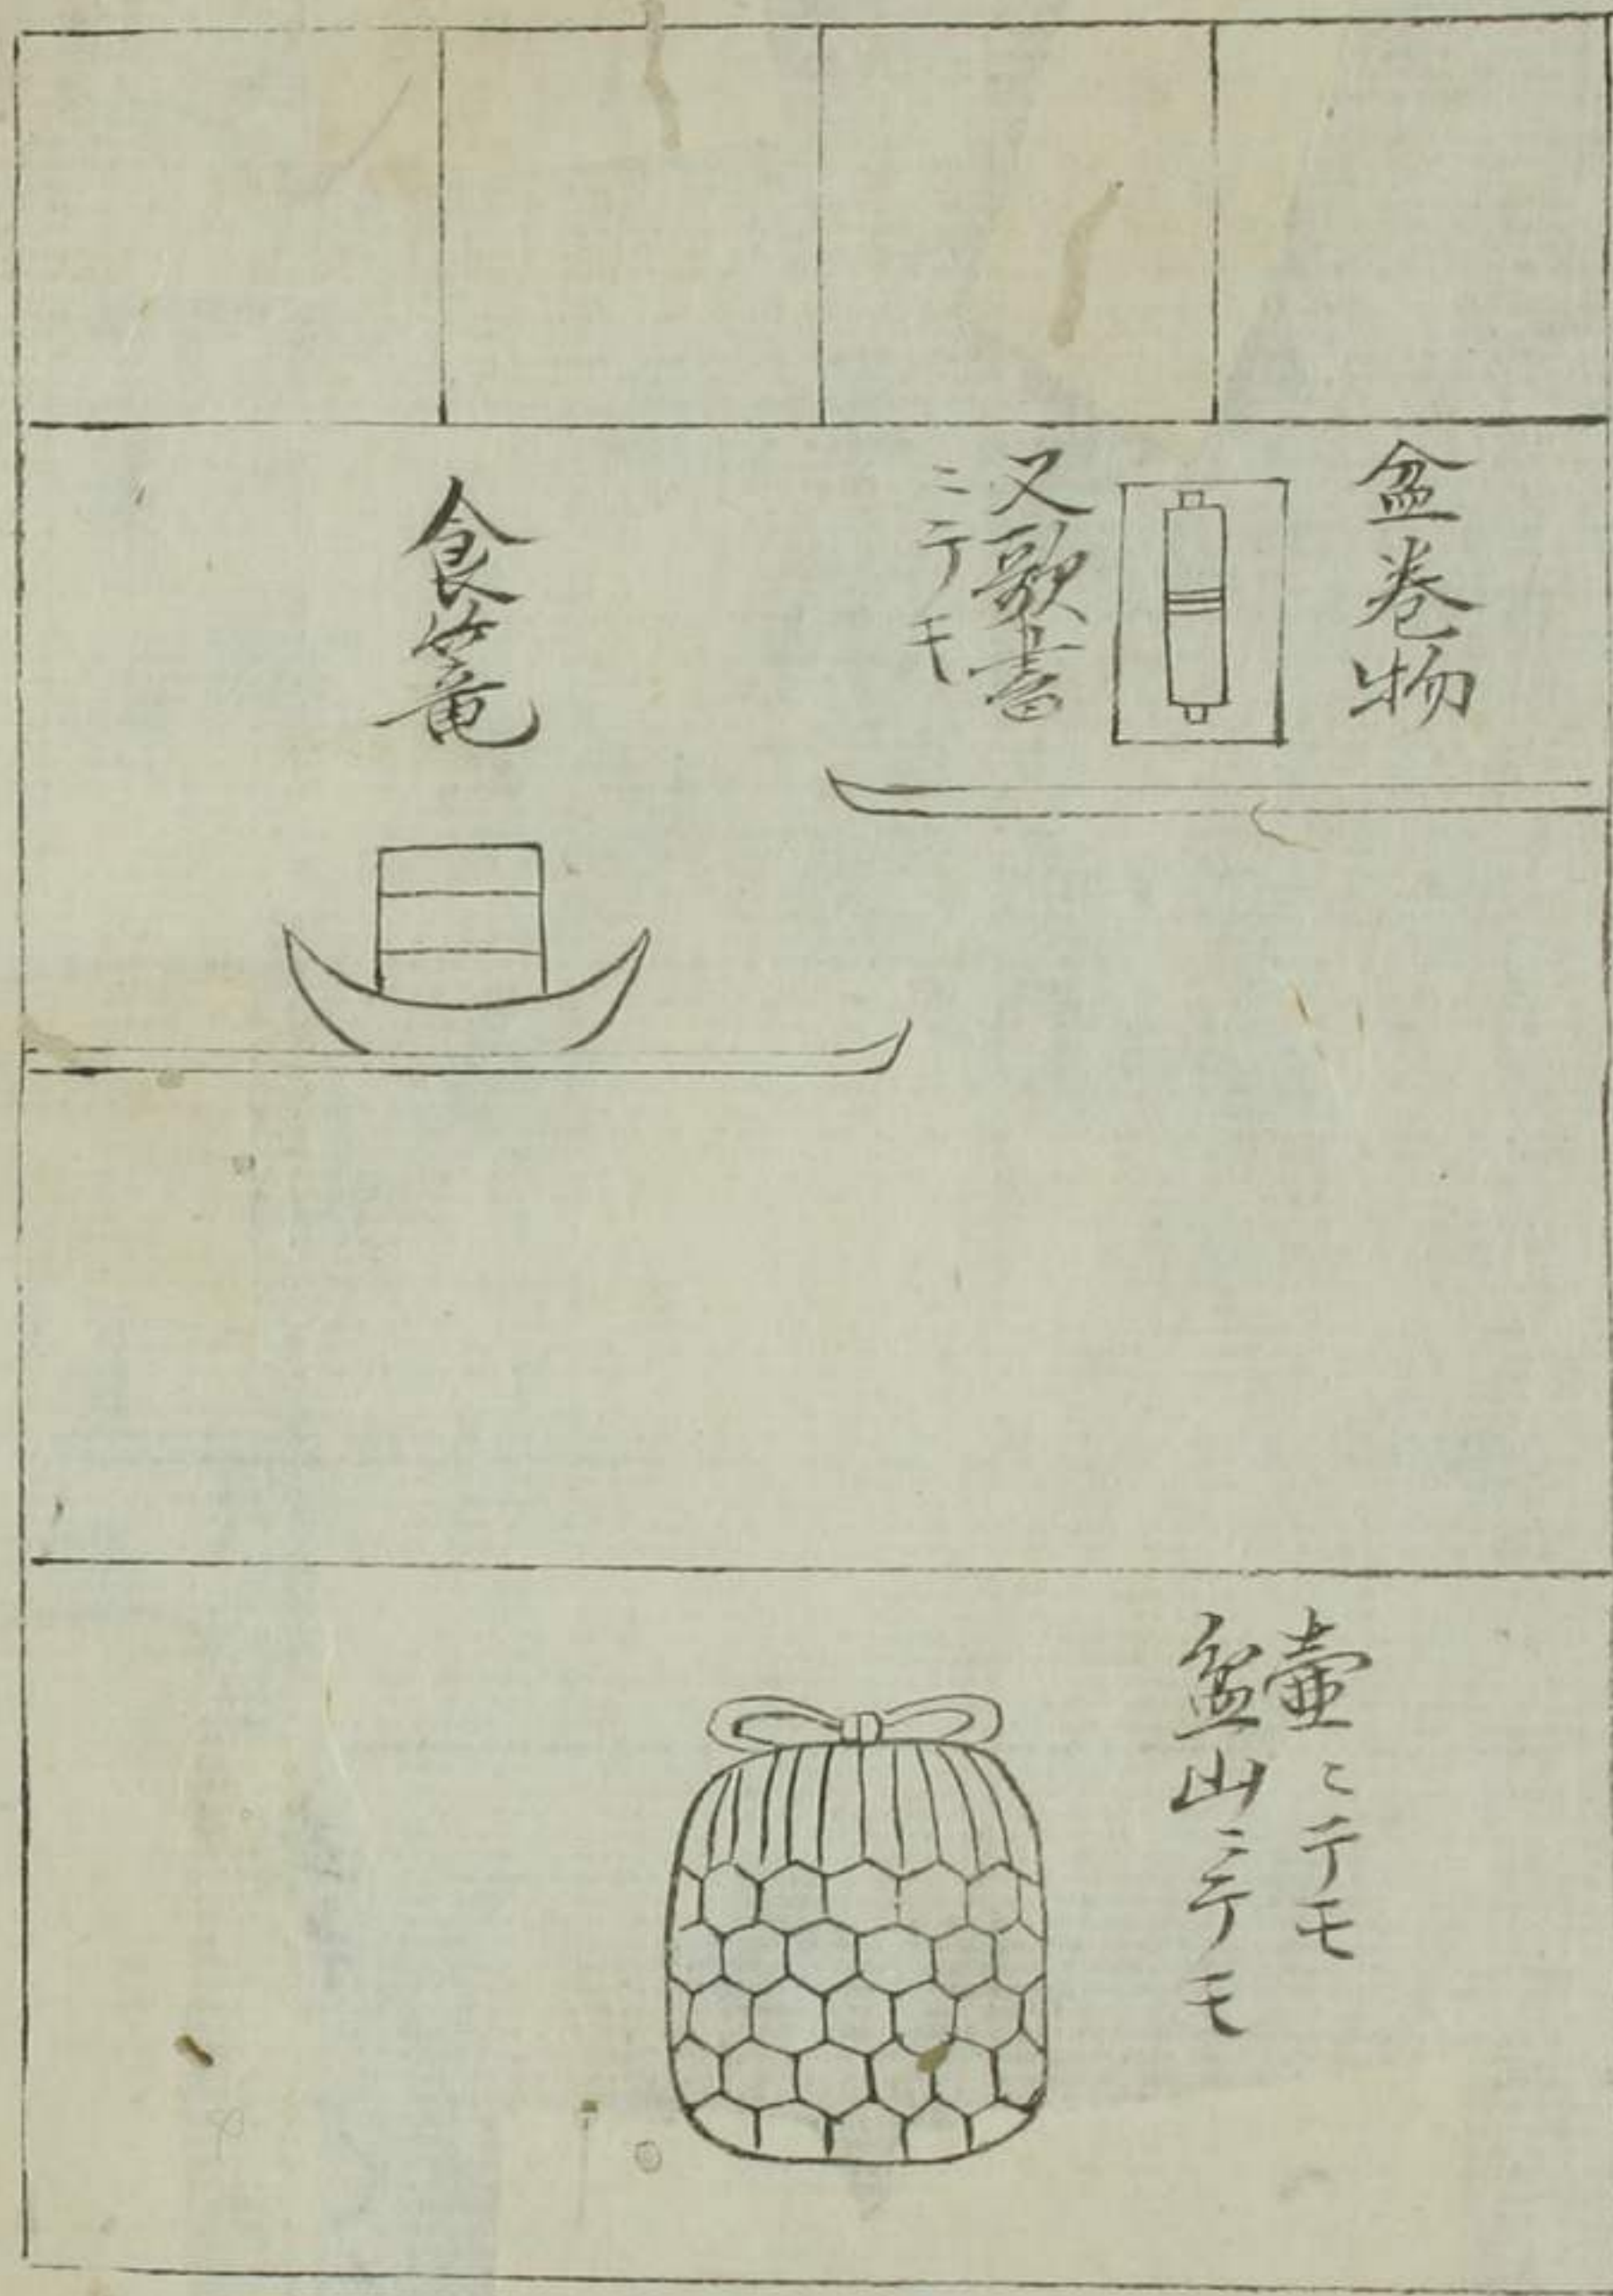 盆巻物
又歌書
ニテモ
食篭
壷ニテモ
盆山ニテモ